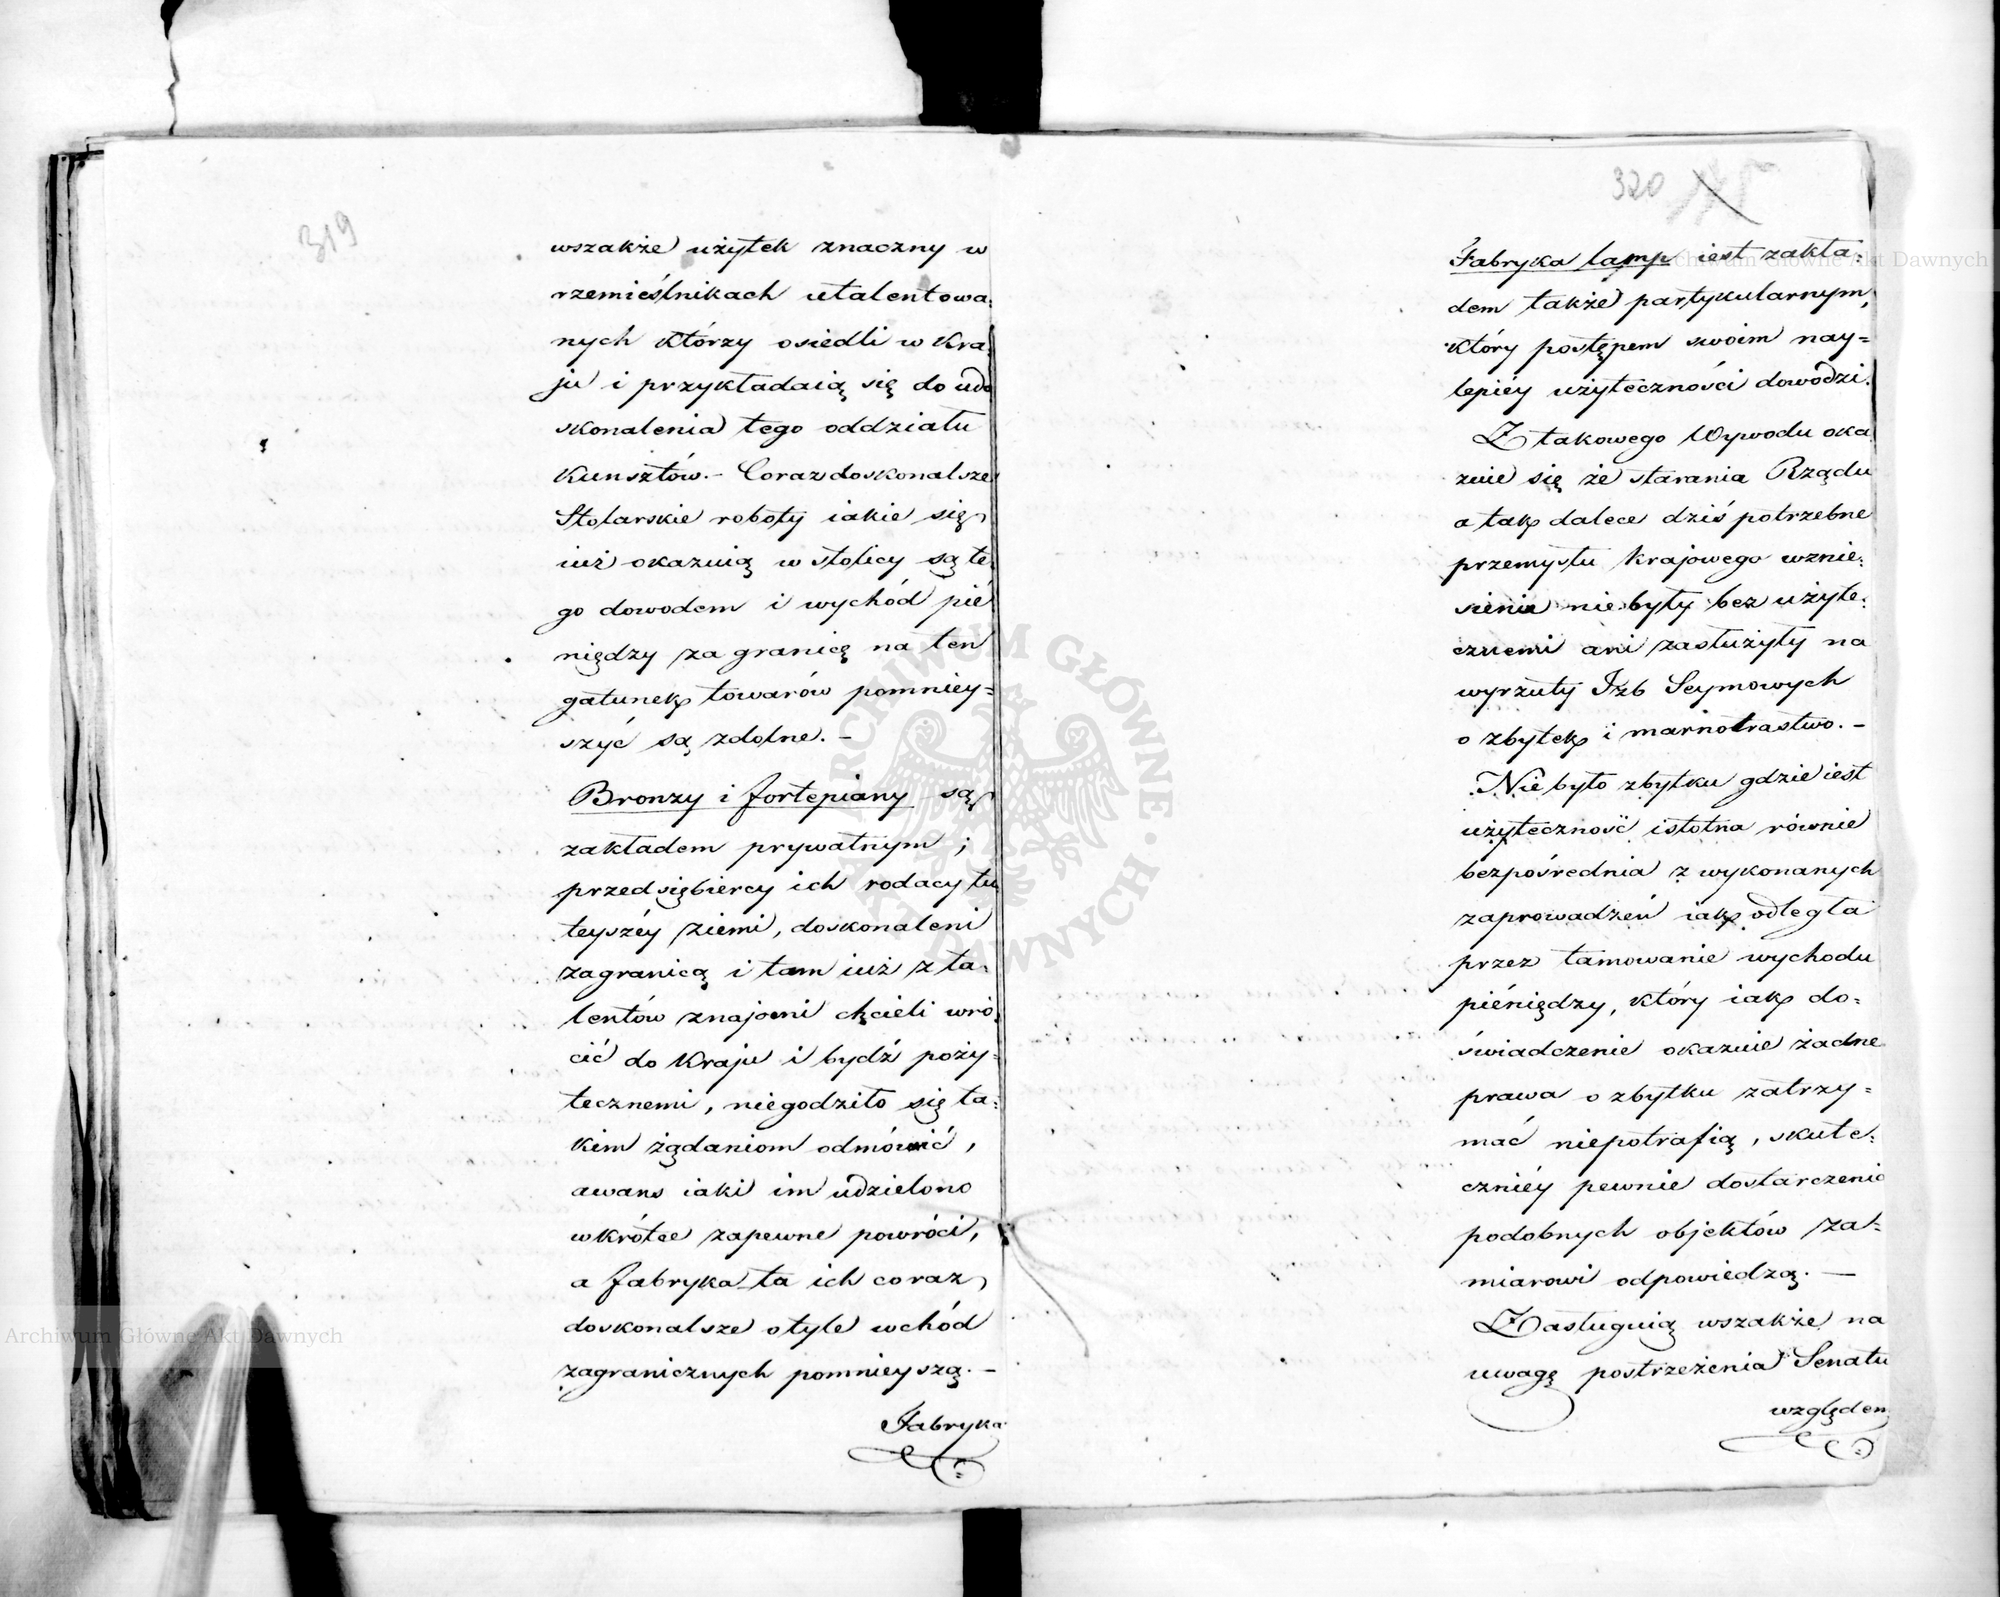 319
wszakże użytek znaczny w
rzemieślnikach utalentowa:
nych którzy osiedli w Kra:
ju i przykładaią się do udo
skonalenia tego oddziału
Kunsztów. – Coraz doskonalsze
Stolarskie roboty iakie się
iuż okazuią w stolicy są te:
go dowodem i wychód pie
niędzy za granicę na ten
gatunek towarów pomniey=
szyć są zdolne. –
Bronzy i fortepiany są
zakładem prywatnym ;
przedsiębiercy ich rodacy tu
teyszéy ziemi, doskonaleni
zagranicą i tam iuż z ta:
lentów znajomi chcieli wró
cić do Kraju i bydź poży=
tecznemi, niegodziło się ta:
kim żądaniom odmówić,
awans iaki im udzielono
wkrótce zapewne powróci,
a fabryka ta ich coraz
doskonalsze o tyle wchód
zagranicznych pomnieyszą. –
Fabryka
320
Fabryka lamp iest zakła:
dem także partykularnym,
który postępem swoim nay=
lepiéy użyteczności dowodzi.
Z takowego Wywodu oka
zuie się że starania Rządu
a tak dalece dziś potrzebne
przemysłu krajowego wznie:
sienia nie były bez użyte:
cznemi ani zasłużyły na
wyrzuty Izb Seymowych
o zbytek i marnotrastwo. –
Nie było zbytku gdzie iest
użyteczność istotna równie
bezpośrednia z wykonanych
zaprowadzeń iak odległa
przez tamowanie wychodu
piéniędzy, który iak do=
świadczenie okazuie żadne
prawa o zbytku zatrzy=
mać niepotrafią, skute:
czniéy pewnie dostarczenie
podobnych objektów za=
miarowi odpowiedzą. –
Zasługuią wszakże na
uwagę postrzeżenia Senatu
względem
Archiwum Główne Akt Dawnych
ARCHIWUM GŁÓWNE AKT DAWNYCH
Archiwum Główne Akt Dawnych